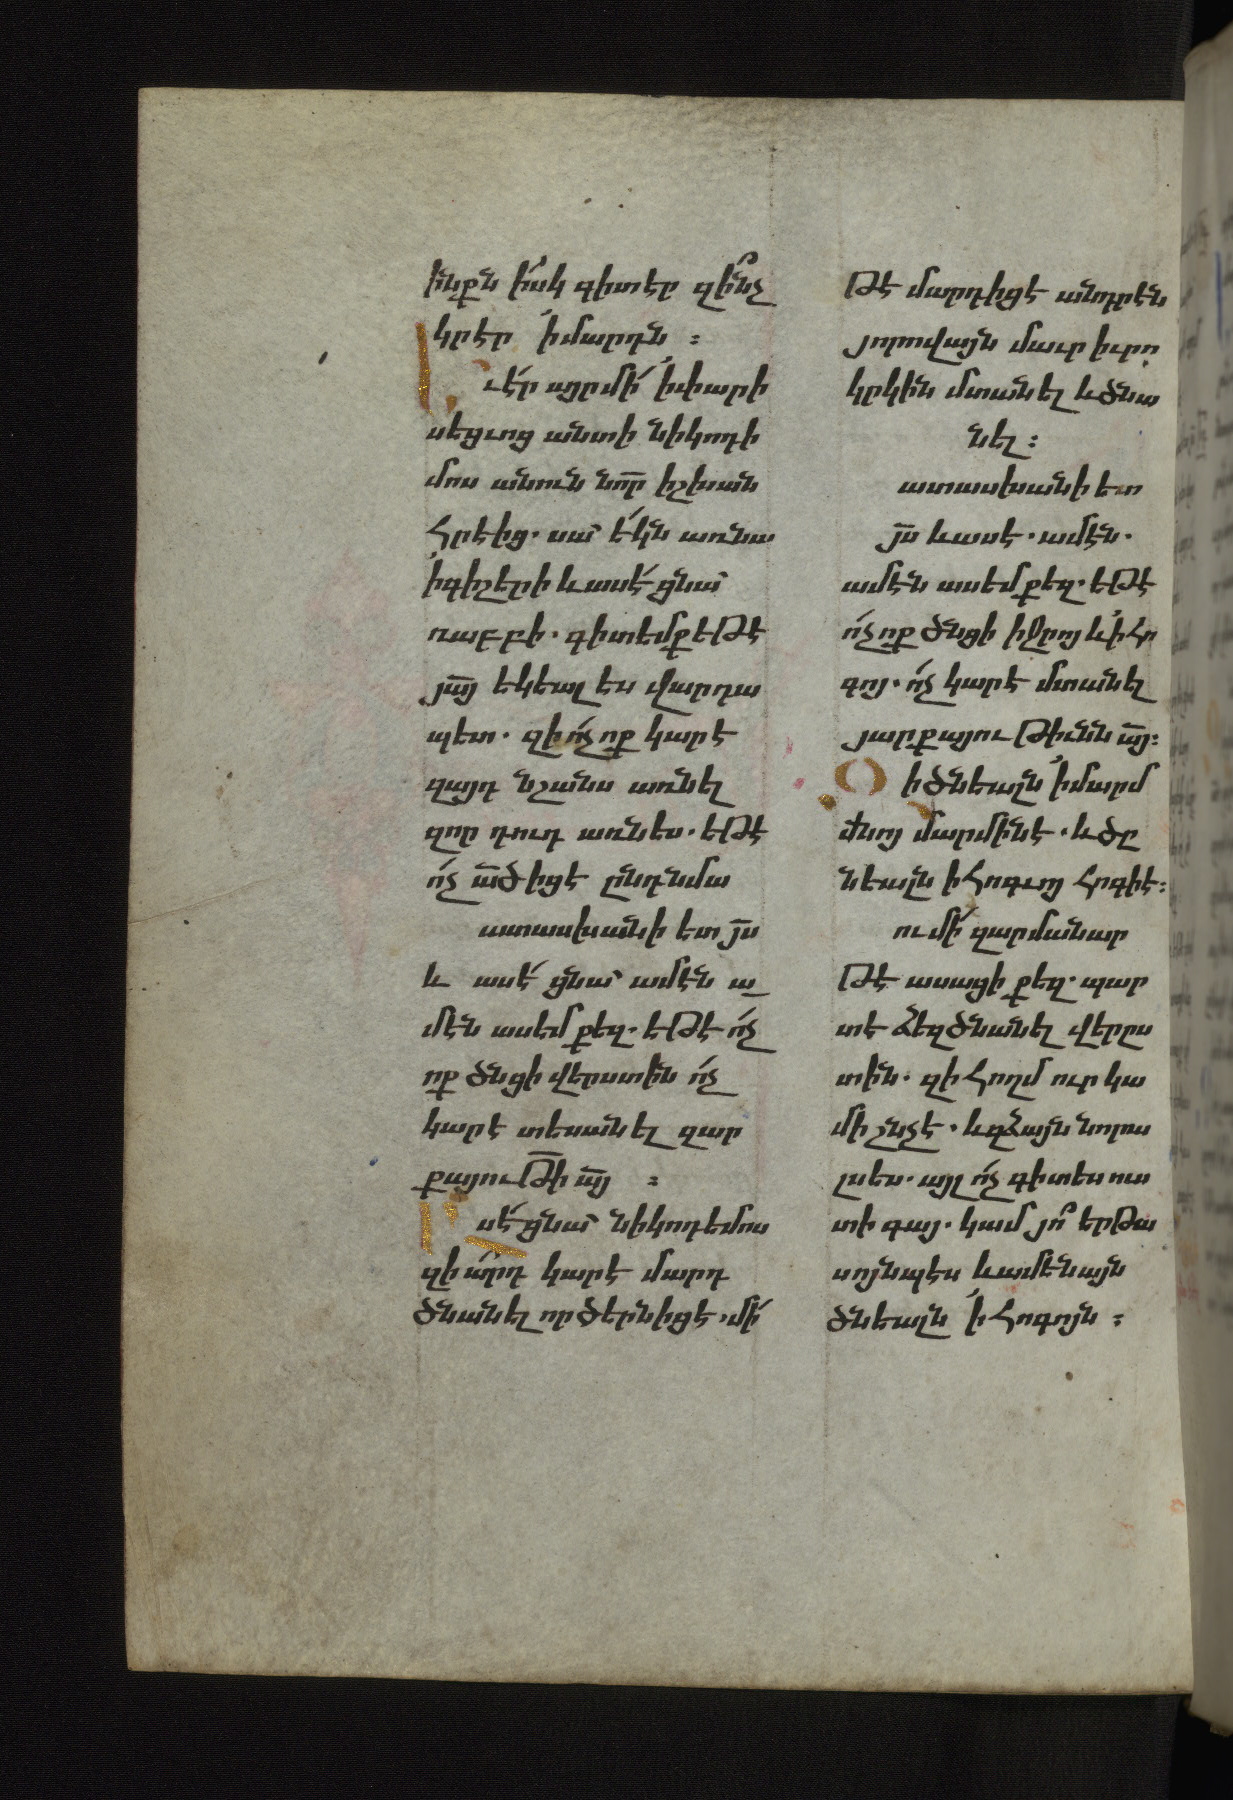 ինքն իսկ գիտէր զի՞նչ
կրէր ՛ի մարդն ։
ւէ՛ր այր մի՛ ՛ի փարի
սեցւոց անտի նիկոդի
մոս անուն նո̅ր̅ իշխան
հրէից. սա՛ ե՛կն առ նա
՛ի գիշերի և ասէ՛ ցնա՛
ռաբբի. գիտեմք եթէ
յա̅յ̅ եկեալ ես վարդա
պետ. զի ո՛չ ոք կարէ
զայդ նշանս առնել
զոր դուդ առնես. եթէ
ո՛չ ա̅ծ̅ իցէ ընդ նմա
ատասխանի ետ յ̅ս̅
և ասէ՛ ցնա՛ ամէն ա_
մէն ասեմ քեզ. եթէ ո՛չ
ոք ծնցի վերստին ո՛չ
կարէ տեսանել զար
քայութի̅ ա̅յ̅ ։
սէ՛ ցնա՛ նիկոդեմոս
զի ա՞րդ կարէ մարդ
ծնանել որ ծերն իցէ. մի՛
թէ մարդ իցէ անդրէն
յորովայն մաւր իւրո
կրկին մտանել և ծնա
նել ։
ատասխանի ետ
յ̅ս̅ և ասէ. ամէն.
ամէն ասեմ քեզ. եթէ
ո՛չ ոք ծնցի ի ջրոյ և ՛ի հո
գոյ. ո՛չ կարէ մտանել
յարքայութիւնն ա̅յ̅ ։
Ո ի ծնեալն ՛ի մարմ
նոյ մարմին է. և ծը
նեալն ի հոգւոյ հոգի է ։
ու մի՛ զարմանար
թէ ասացի քեզ. պար
տէ ձեզ ծնանել վերըս
տին. զի հողմ ուր կա
մի շնչէ. և զձայն նորա
լսես. այլ ո՛չ գիտես ուս
տի գայ. կամ յո՞ երթա
սոյնպէս և ամենայն
ծնեալն ՛ի հոգոյն ։